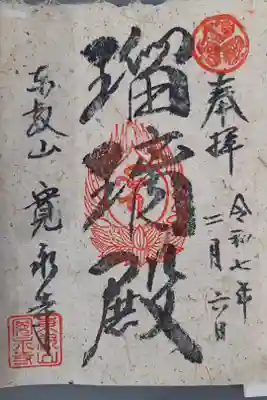 奉拝
令和七年
二月六日
瑠璃殿
東叡山 寛永寺